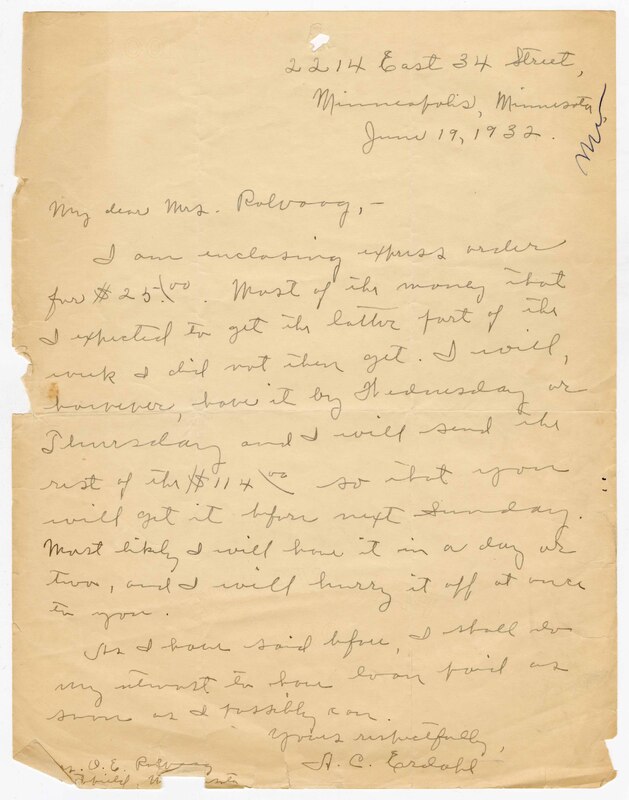 2214 East 34 Street,
Minneapolis, Minnesota,
June 19, 1932.
My dear Mrs. Rolvaag,-
I am enclosing express order
for $25.00. Most of the money that
I expected to get the latter part of the
week I did not then get. I will,
however, have it by Wednesday or
Thursday and I will send the
rest of the $114 00 so that you
will get it before next Sunday.
Most likely I will have it in a day or
two, and I will hurry it off at once
to you.
As I have said before, I shall do
my utmost to have loan paid as
soon as I possibly can.
Yours respectfully,
A. C. Erdahl
O. E. Rolvaag